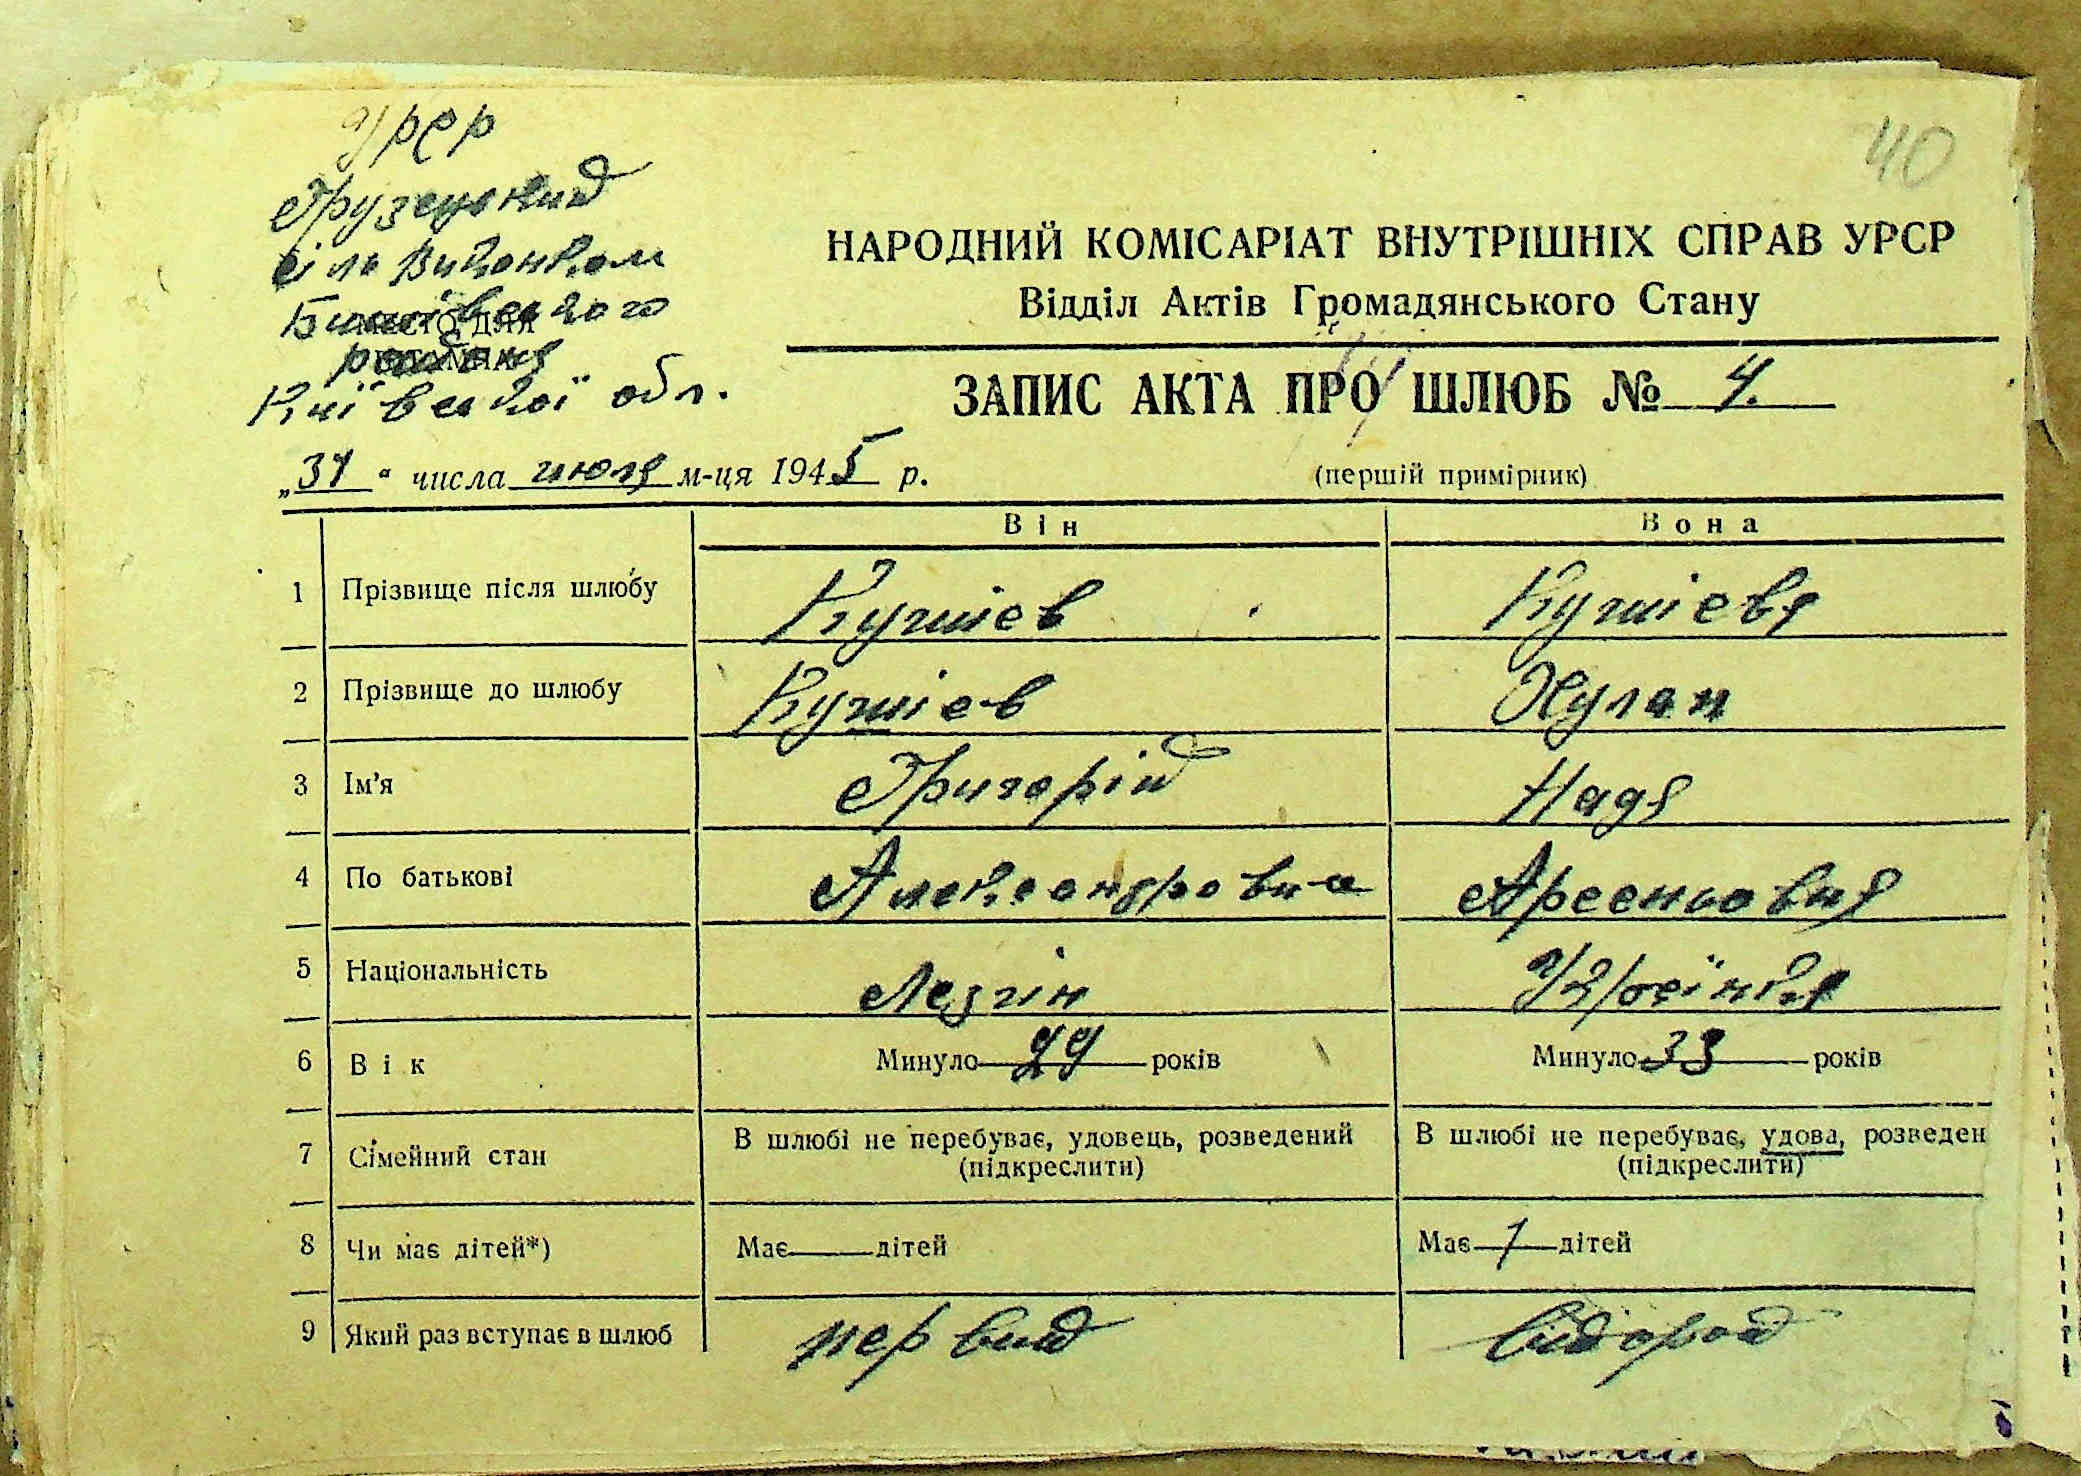 УРСР
40
Грузський
сільвиконком
НАРОДНИЙ КОМІСАРІАТ ВНУТРІШНІХ СПРАВ УРСР
Відділ Актів Громадянського Стану
Київської обл.
ЗАПИС АКТА ПРО ШЛЮБ № 4.
„31" числа июля м-ця 1945 р.
(першій примірник)
Він Вона
1 Прізвище після шлюбу Кушіев Кушіева
2 Прізвище до шлюбу Кушіев Кулан
3 Ім'я Григорій Надя
4 По батькові Александрович Арсеньовна
5 Національність Лезгін Українка
6 Вік Минуло 29 років Минуло 33 років
7 Сімейний стан В шлюбі не перебуває, удовець, розведений В шлюбі не перебуває, удова, розведен
(підкреслити) (підкреслити)
8 Чи має дітей*) Має дітей Має 1 дітей
9 Який раз вступає в шлюб первий второй